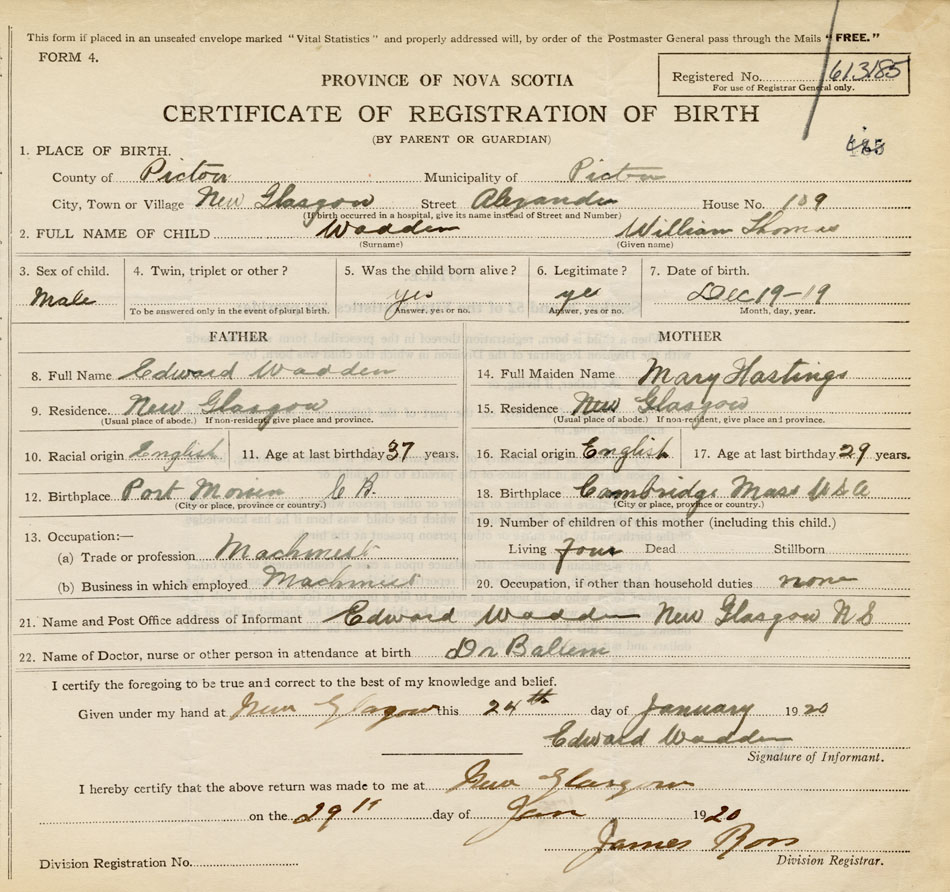 This form if placed in an unsealed envelope marked "Vital Statistics" and properly addressed will, by order of the Postmaster General pass through the Mails "FREE."
FORM 4.
Registered No. 613185
For use of Registrar General only.
PROVINCE OF NOVA SCOTIA
CERTIFICATE OF REGISTRATION OF BIRTH
(BY PARENT OR GUARDIAN)
1. PLACE OF BIRTH.
County of Pictou Municipality of Pictou
City, Town or Village New Glasgow Street Alexander House No. 109
(If birth occurred in a hospital, give its name instead of Street and Number)
2. FULL NAME OF CHILD Wadden William Thomas
(Surname) (Given name)
3. Sex of child. 4. Twin, triplet or other? 5. Was the child born alive? 6. Legitimate? 7. Date of birth.
Male yes yes Dec 19-19
To be answered only in the event of plural birth. Answer, yes or no. Answer, yes or no. Month, day, year.
FATHER MOTHER
8. Full Name Edward Wadden 14. Full Maiden Name Mary Hastings
9. Residence New Glasgow 15. Residence New Glasgow
(Usual place of abode.) If non-resident, give place and province. (Usual place of abode.) If non-resident, give place and province.
10. Racial origin English 11. Age at last birthday 37 years. 16. Racial origin English 17. Age at last birthday 29 years.
12. Birthplace Port Morien C B. 18. Birthplace Cambridge Mass U S A
(City or place, province or country.) (City or place, province or country.)
13. Occupation:— 19. Number of children of this mother (including this child.)
(a) Trade or profession Machinist Living four Dead Stillborn
(b) Business in which employed Machinist 20. Occupation, if other than household duties none
21. Name and Post Office address of Informant Edward Wadden New Glasgow N S
22. Name of Doctor, nurse or other person in attendance at birth Dr Ballem
I certify the foregoing to be true and correct to the best of my knowledge and belief.
Given under my hand at New Glasgow this 24th day of January 1920
Edward Wadden
Signature of Informant.
I hereby certify that the above return was made to me at New Glasgow
on the 29 day of Jan 1920
James Ross
Division Registration No. Division Registrar.